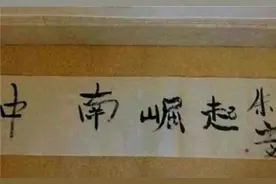 中南崛起